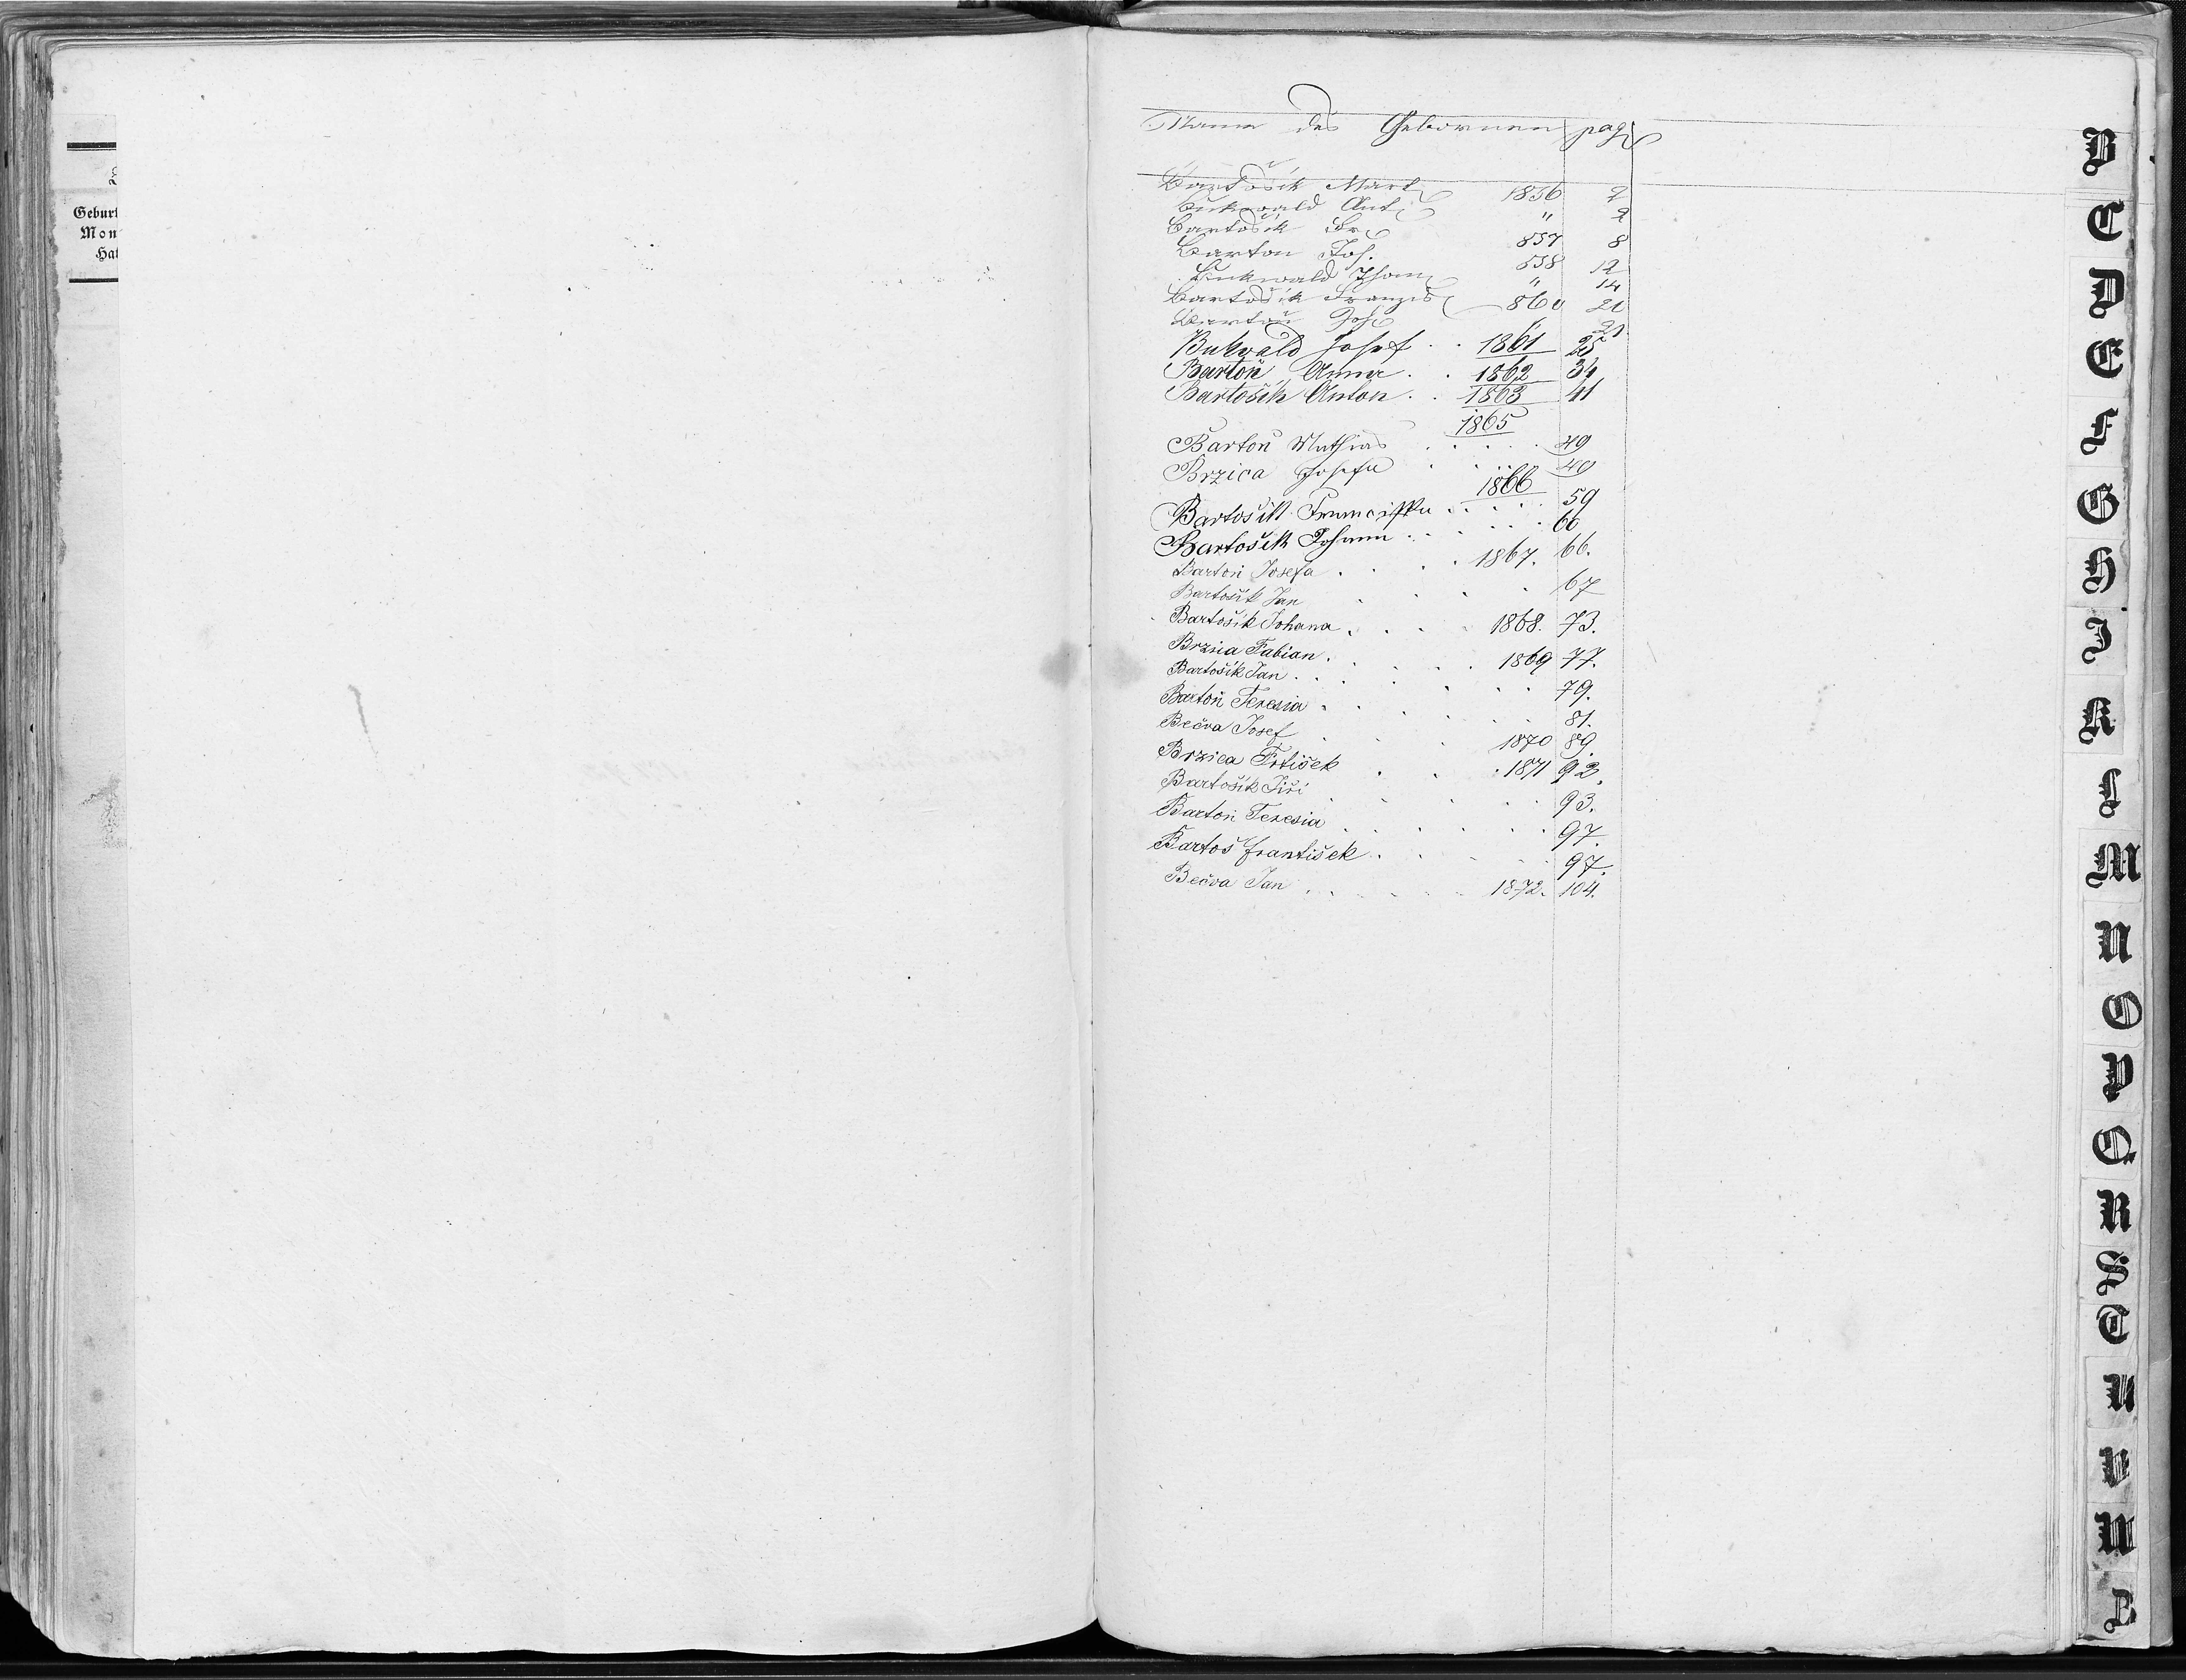 Geburt
Mon
Hal
Name des Gebornen pag
Bartošik Mart 1856 2
Bukwald Ant " 2
Bartošik Fr 857 8
Barton Jos. 858 12
Bukwald Thom " 14
Bartošik Franzis 860 20
Bartoň Joh " 21
Bukvald Josef . . 1861 25
Bartoň Anna . . 1862 34
Bartošik Anton . . 1863 41
1865
Bartoň Mathias . . . . 49
Brzica Josefa . . . . 49
1866
Bartošik Franciska . . . . . 59
Bartošik Johann . . . . . 60
Bartoň Josefa . . . . 1867. 66.
Bartošik Jan . . . . 67
Bartošik Johana . . . . 1868. 73.
Brzica Fabian . . . . . 1869 77.
Bartošik Jan . . . . . . . 79.
Bartoň Teresia . . . . . . 81.
Bečva Josef . . . 1870 89.
Brzica Frtišek . . . 1871 92.
Bartošik Jiři . . . . . 93.
Bartoň Teresia . . . . . . 97.
Bartoš František . . . . . 97.
Bečva Jan . . . . . 1872. 104.
B
C
D
E
F
G
H
I
K
L
M
N
O
P
Q
R
S
T
U
V
W
Z